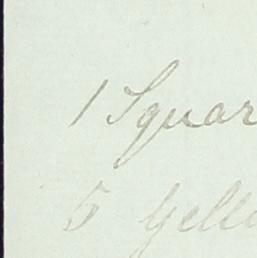 1 Squar
5 Yell